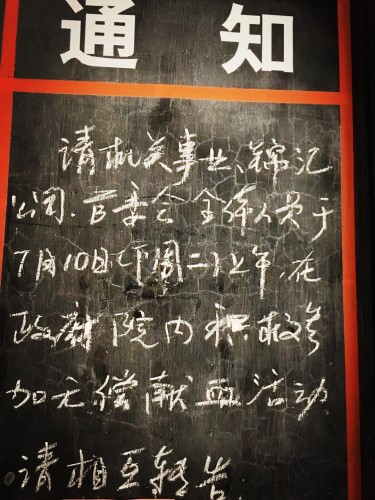 通知
请机关事业、锦汇
公司、管委会全体人员于
7月10日(下周二)上午,在
政府院内积极参
加无偿献血活动
请相互转告